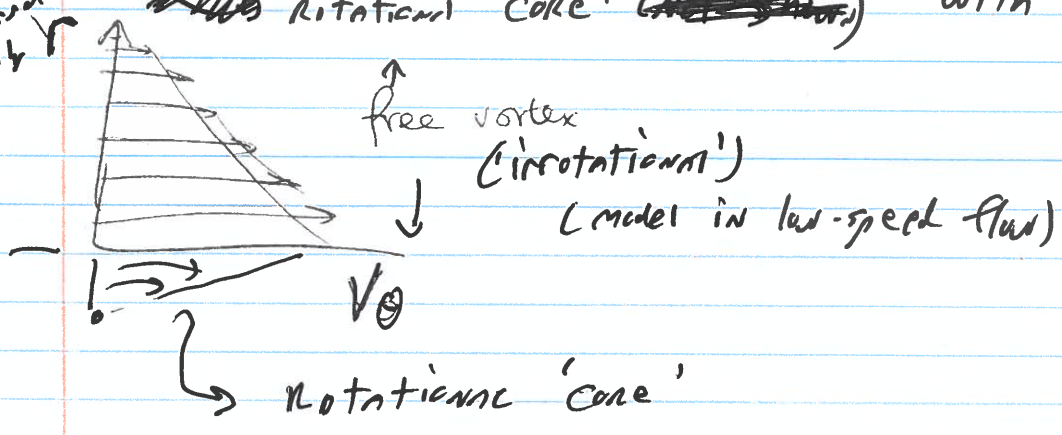 r Rotational core with
free vortex
('irrotational')
(model in low-speed flow)
Vθ
Rotational 'core'